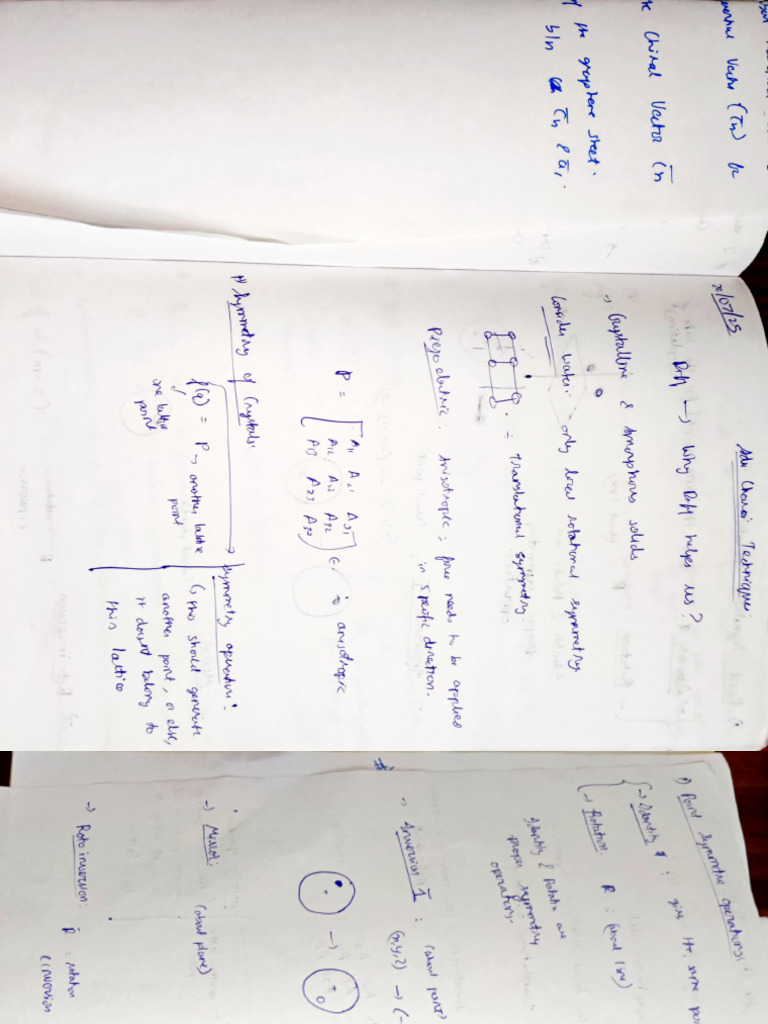 (c̄h) &
Chiral Vector (n
the graphene sheet.
b/n c̄h & ā₁.
/07/25
→ Why helps us?
→ Crystalline & Amorphous solids
Consider water: only local rotational symmetry
= Translational symmetry
Piezo electric: Anisotropic; force needs to be applied
in specific direction.
P = [A₁₁ A₂₁ A₃₁
A₁₂ A₂₂ A₃₂
A₁₃ A₂₃ A₃₃] ε
anisotropic
Symmetry of Crystals:
→ Symmetry operation:
f(q) = P → another lattice
point
one lattice
point
↳ this should generate
another point, or else,
it doesn't belong to
this lattice
1) Point Symmetric operations:
→ Identity 1 : give the same
→ Rotation R : (about line)
Identity & Rotation are
proper symmetry
operations.
#
→ Inversion 1̄ : (about point)
(x,y,z) → (-
→ Mirror: (about plane)
→ Roto inversion: R̄ : rotation
inversion